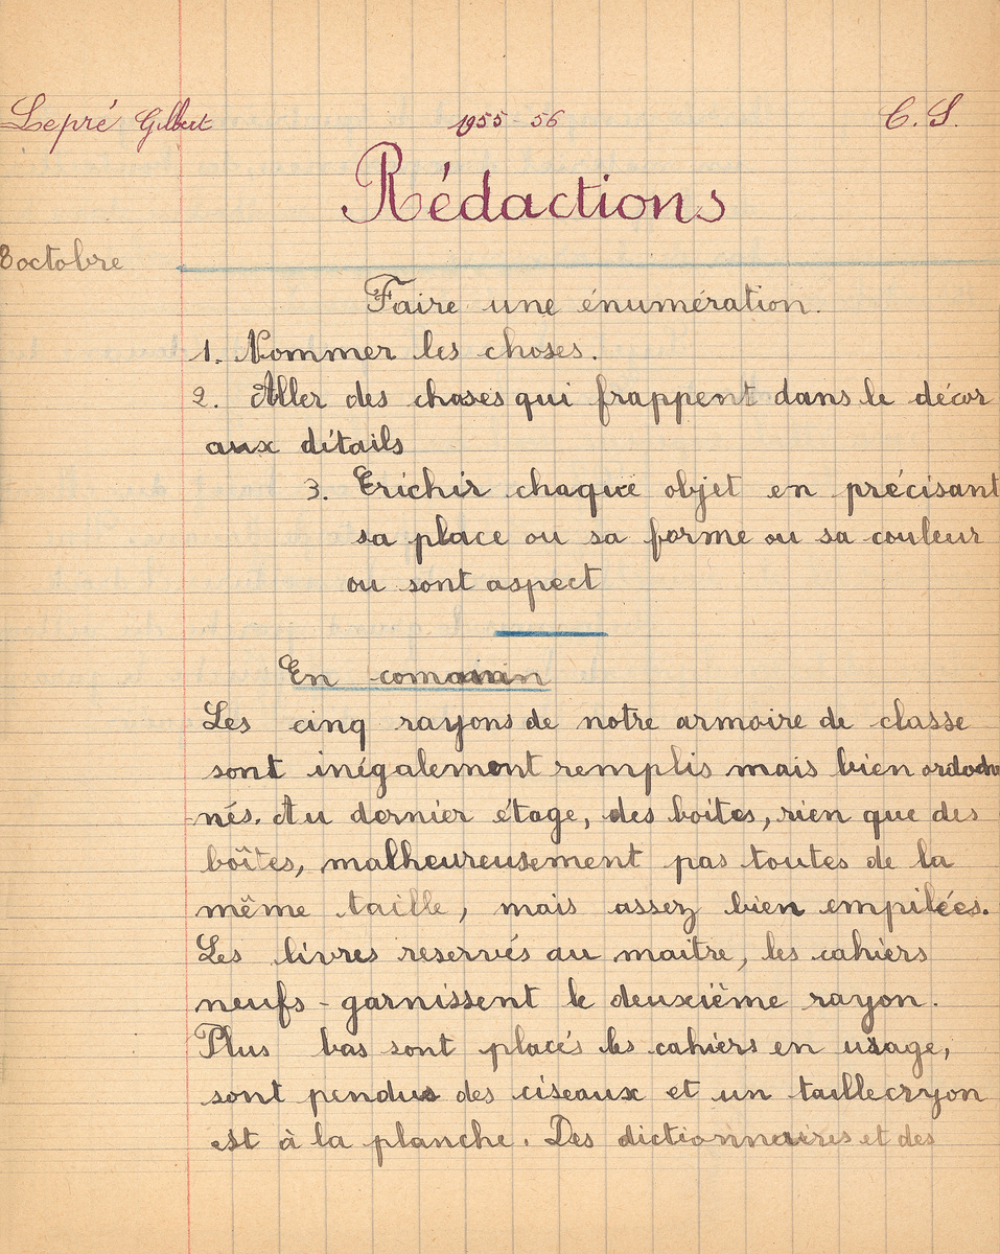 Lepré Gilbert 1955-56 C.S.
Rédactions
8 octobre
Faire une énumération.
1. Nommer les choses.
2. Aller des choses qui frappent dans le décor
aux détails
3. Erichir chaque objet en précisant
sa place ou sa forme ou sa couleur
ou sont aspect
En
Les cinq rayons de notre armoire de classe
sont inégalement remplis mais bien
nés. Au dernier étage, des boites, rien que des
boîtes, malheureusement pas toutes de la
même taille, mais assez bien empilées.
Les livres reservés au maitre, les cahiers
neufs - garnissent le deuxiême rayon.
Plus bas sont placés les cahiers en usage,
sont pendus des ciseaux et un taillecryon
est à la planche. Des dictionnaires et des